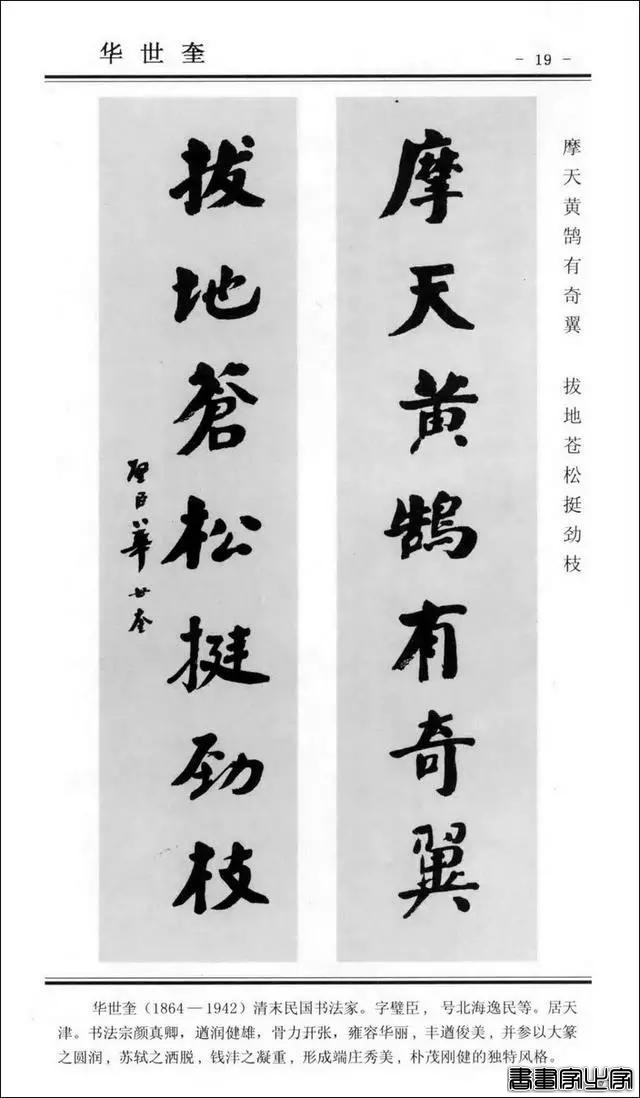 华世奎
- 19 -
摩天黄鹄有奇翼 拔地苍松挺劲枝
摩天黄鹄有奇翼
拔地蒼松挺劲枝
璧臣華世奎
华世奎（1864—1942）清末民国书法家。字璧臣，号北海逸民等。居天
津。书法宗颜真卿，遒润健雄，骨力开张，雍容华丽，丰遒俊美，并参以大篆
之圆润，苏轼之洒脱，钱沣之凝重，形成端庄秀美，朴茂刚健的独特风格。
書畫家必字